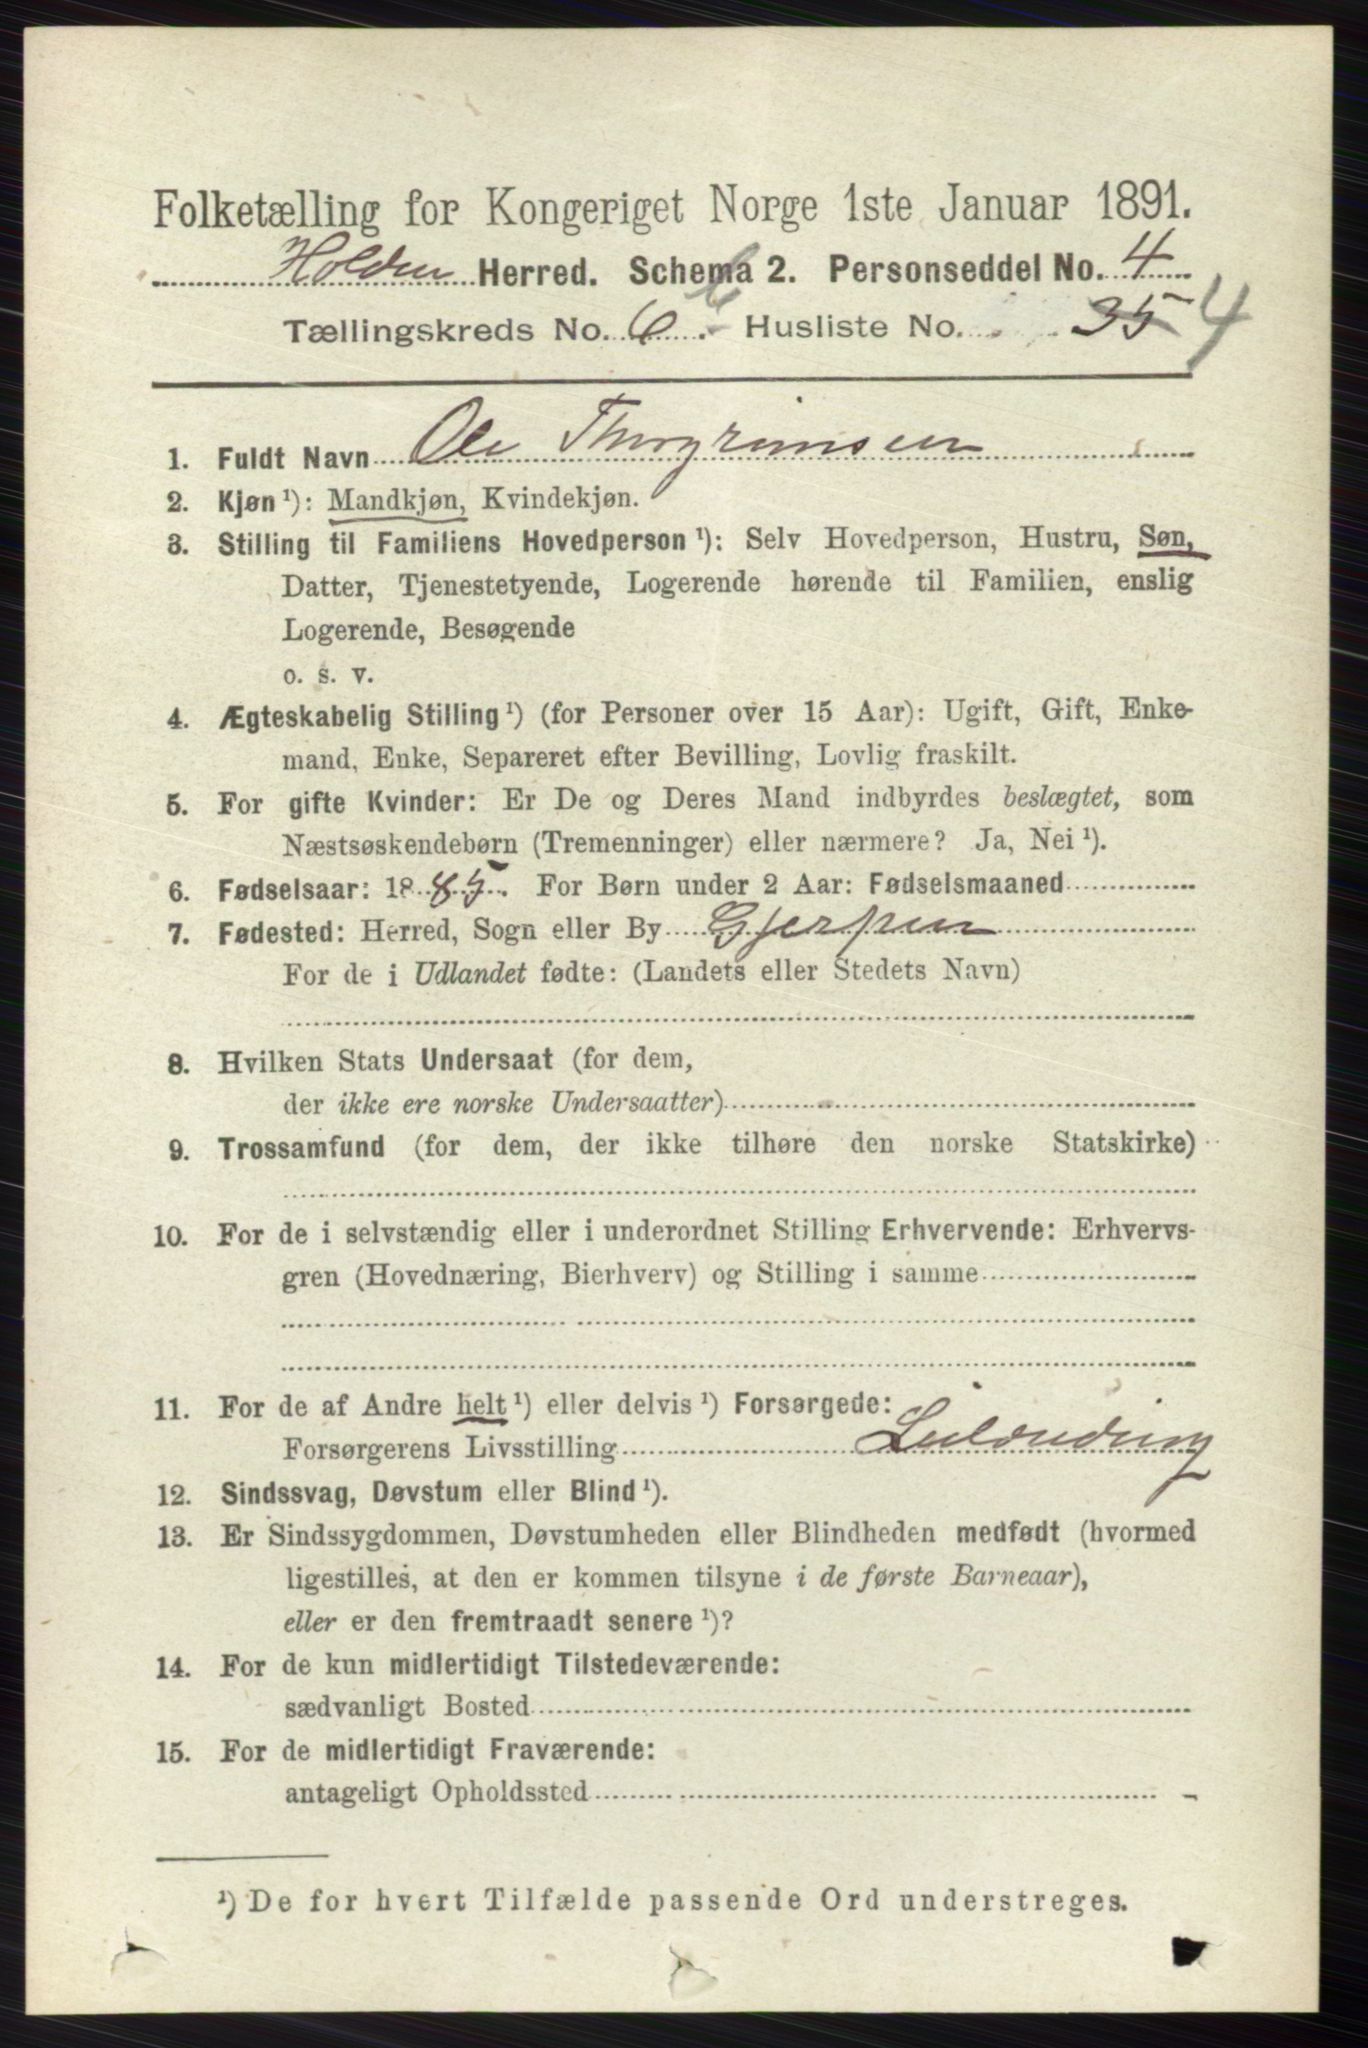 Folketælling for Kongeriget Norge 1ste Januar 1891.
Holden Herred. Schema 2. Personseddel No. 4
Tællingskreds No. 6. Husliste No. 35 4
1. Fuldt Navn Ole Thorgrimsen
2. Kjøn ¹): Mandkjøn, Kvindekjøn.
3. Stilling til Familiens Hovedperson ¹): Selv Hovedperson, Hustru, Søn,
Datter, Tjenestetyende, Logerende hørende til Familien, enslig
Logerende, Besøgende
o. s. v.
4. Ægteskabelig Stilling ¹) (for Personer over 15 Aar): Ugift, Gift, Enke-
mand, Enke, Separeret efter Bevilling, Lovlig fraskilt.
5. For gifte Kvinder: Er De og Deres Mand indbyrdes beslægtet, som
Næstsøskendebørn (Tremenninger) eller nærmere? Ja, Nei ¹).
6. Fødselsaar: 1885. For Børn under 2 Aar: Fødselsmaaned
7. Fødested: Herred, Sogn eller By Gjerpen
For de i Udlandet fødte: (Landets eller Stedets Navn)
8. Hvilken Stats Undersaat (for dem,
der ikke ere norske Undersaatter)
9. Trossamfund (for dem, der ikke tilhøre den norske Statskirke)
10. For de i selvstændig eller i underordnet Stilling Erhvervende: Erhvervs-
gren (Hovednæring, Bierhverv) og Stilling i samme
11. For de af Andre helt ¹) eller delvis ¹) Forsørgede:
Forsørgerens Livsstilling
12. Sindssvag, Døvstum eller Blind ¹).
13. Er Sindssygdommen, Døvstumheden eller Blindheden medfødt (hvormed
ligestilles, at den er kommen tilsyne i de første Barneaar),
eller er den fremtraadt senere ¹)?
14. For de kun midlertidigt Tilstedeværende:
sædvanligt Bosted
15. For de midlertidigt Fraværende:
antageligt Opholdssted
¹) De for hvert Tilfælde passende Ord understreges.